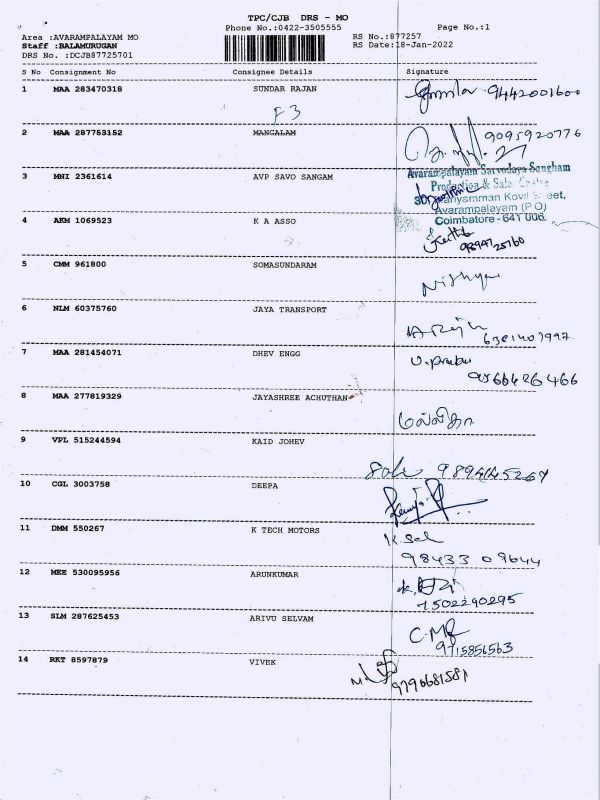 TPC/CJB DRS - MO
Phone No.:0422-3505555
Page No.:1
Area :AVARAMPALAYAM MO
Staff :BALAMURUGAN
DRS No. :DCJB87725701
RS No.:877257
RS Date:18-Jan-2022
S No Consignment No Consignee Details Signature
1 MAA 283470318 SUNDAR RAJAN 9442001600
F3
2 MAA 287753152 MANGALAM 9095920776
3 MNI 2361614 AVP SAVO SANGAM
Avarampalayam Sarvodaya Sangham
Production & Sale Centre
Avarampalayam (P O)
Coimbatore - 641 006.
4 AKM 1069523 K A ASSO
Keerthi
5 CMM 961800 SOMASUNDARAM
Nithya
6 NLM 60375760 JAYA TRANSPORT
7 MAA 281454071 DHEV ENGG
U. Prabu
9566426466
8 MAA 277819329 JAYASHREE ACHUTHAN
மல்லிகா
9 VPL 515244594 KAID JOHEV
10 CGL 3003758 DEEPA
11 DMM 550267 K TECH MOTORS
K Sel
98433 09644
12 MEE 530095956 ARUNKUMAR
7502290295
13 SLM 287625453 ARIVU SELVAM
9715856563
14 RKT 8597879 VIVEK
9790681581